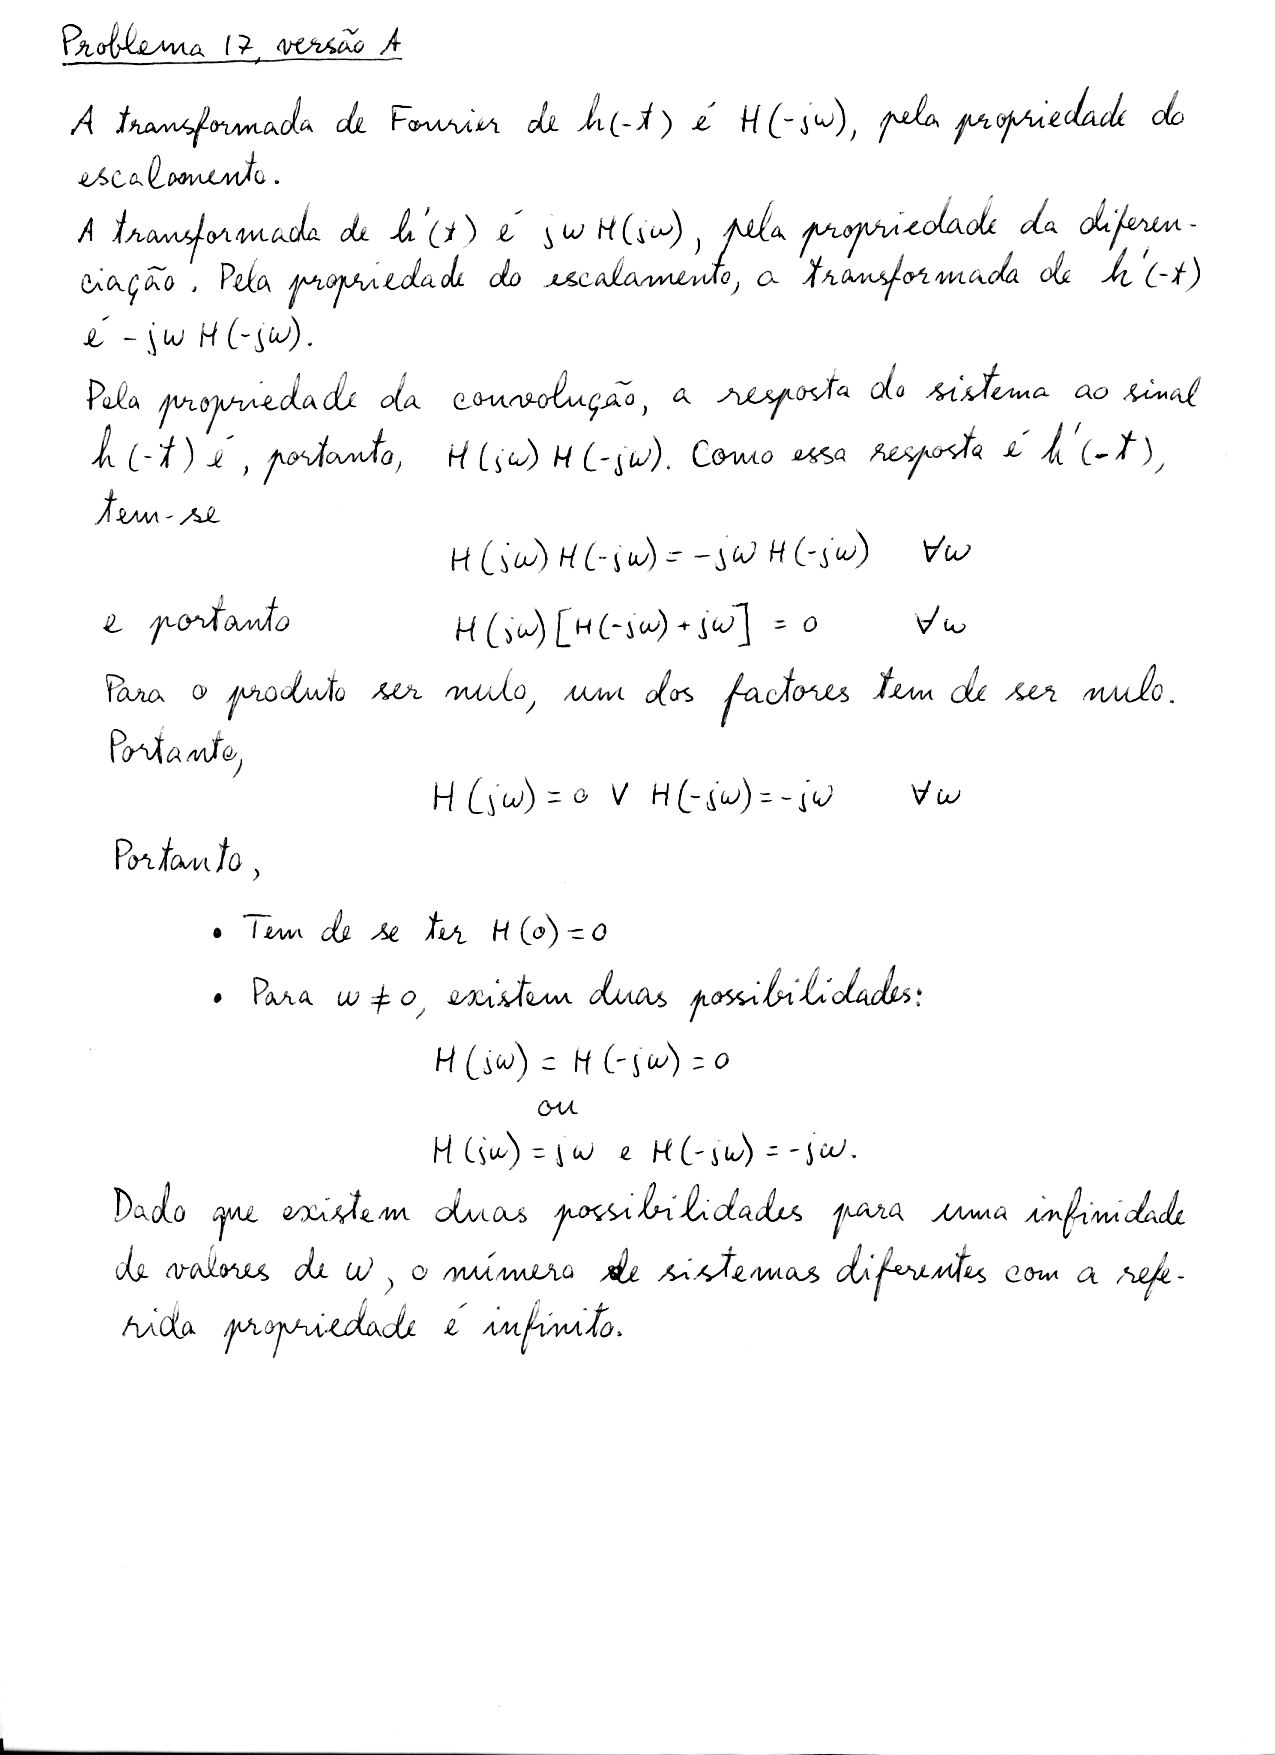 Problema 17, versão A
A transformada de Fourier de h(-t) é H(-jω), pela propriedade do
escalamento.
A transformada de h'(t) é jω H(jω), pela propriedade da diferen-
ciação. Pela propriedade do escalamento, a transformada de h'(-t)
é -jω H(-jω).
Pela propriedade da convolução, a resposta do sistema ao sinal
h(-t) é, portanto, H(jω) H(-jω). Como essa resposta é h'(-t),
tem-se
H(jω) H(-jω) = -jω H(-jω) ∀ω
e portanto H(jω) [H(-jω) + jω] = 0 ∀ω
Para o produto ser nulo, um dos factores tem de ser nulo.
Portanto,
H(jω) = 0 ∨ H(-jω) = -jω ∀ω
Portanto,
• Tem de se ter H(0) = 0
• Para ω ≠ 0, existem duas possibilidades:
H(jω) = H(-jω) = 0
ou
H(jω) = jω e H(-jω) = -jω.
Dado que existem duas possibilidades para uma infinidade
de valores de ω, o número de sistemas diferentes com a refe-
rida propriedade é infinito.